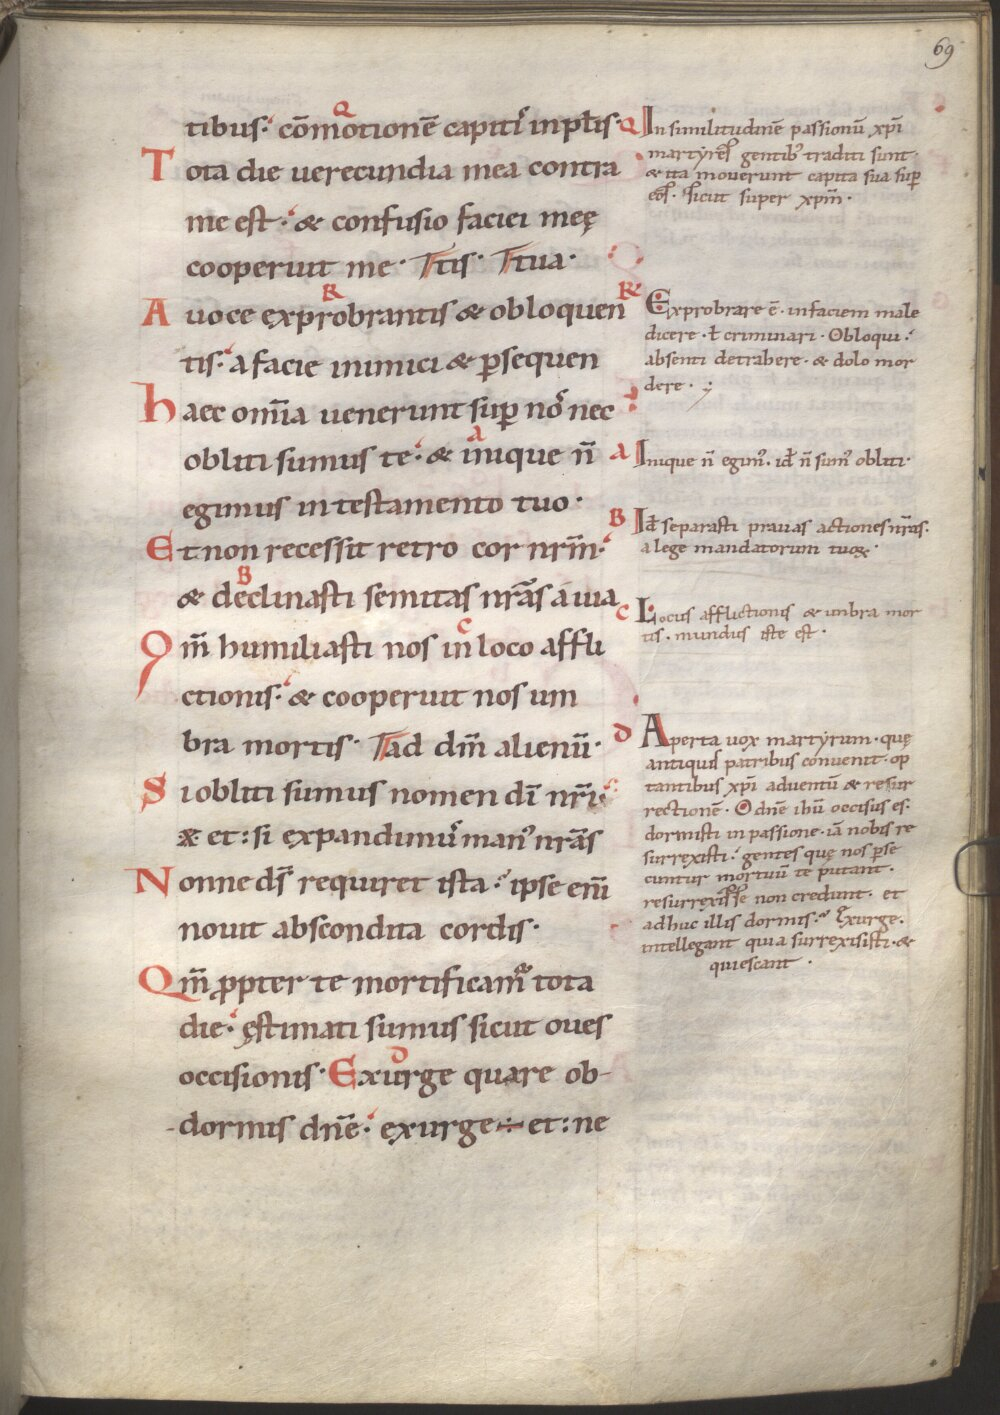 69
tibus· cōmotionē capitis in pplis·
Tota die uerecundia mea contra
me est· & confusio faciei meę
cooperuit me· Ttis· Ttua·
A uoce exprobrantis & obloquen
tis· a facie inimici & psequen
haec om̄ia uenerunt sup nos nec
obliti sumus te· & inique n̄
egimus in testamento tuo·
Et non recessit retro cor nr̄m·
& declinasti semitas nr̄as a uia
Qm̄ humiliasti nos in loco affli
ctionis· & cooperuit nos um
bra mortis· Tad dm̄ alienū·
Si obliti sumus nomen dī nr̄i·
& et: si expandimus man' nr̄as
Nonne ds̄ requiret ista· ipse eni̅
nouit abscondita cordis·
Qm̄ ꝓpter te mortificamur tota
die· ęstimati sumus sicut oues
occisionis· Exurge quare ob-
dormis dn̄e· exurge ÷ et: ne
Q In similitudinē passionū xp̄i
martyres gentib' traditi sunt
& ita mouerunt capita sua sup
eos· sicut super xpm̄·
R Exprobrare ē· in faciem male
dicere· ł criminari· Obloqui·
absenti detrahere· & dolo mor
dere·
A Inique n̄ egim'· id n̄ sum' obliti·
B Id separasti prauas actiones nr̄as·
a lege mandatorum tuoꝝ·
C Locus afflictionis & umbra mor
tis· mundus iste est·
D Aperta uox martyrum· quę
antiquis patribus conuenit· op
tantibus xp̄i aduentū & resur
rectionē· O dn̄e ihū occisus es·
dormisti in passione· iā nobis re
surrexisti· gentes quę nos pse
cuntur mortuū te putant·
resurrexisse non credunt· et
adhuc illis dormis· Exurge·
intellegant quia surrexisisti· &
quiescant·